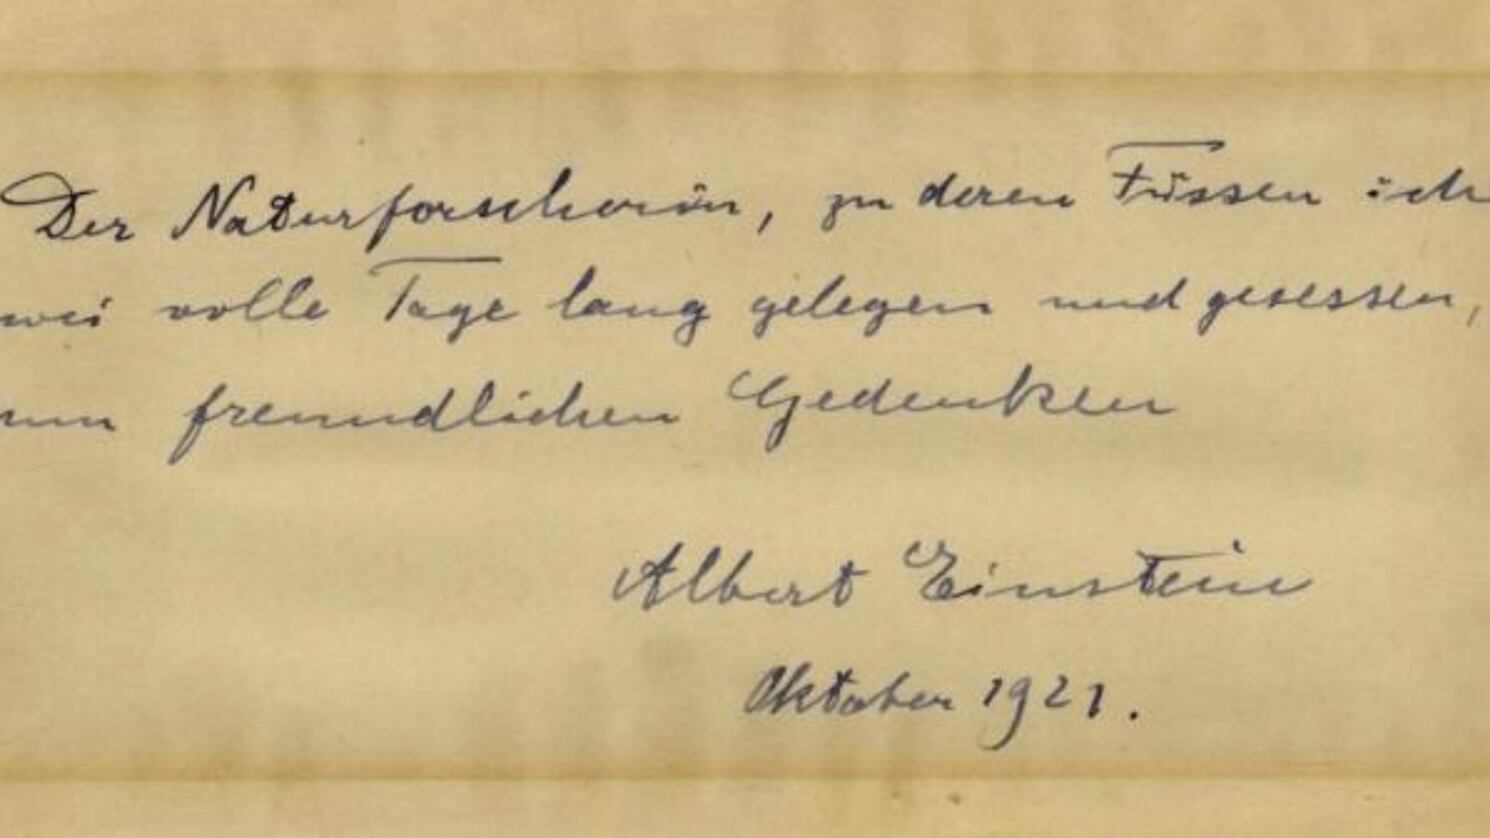 Der Naturforscherin, zu deren Füssen ich
wei volle Tage lang gelegen und gesessen,
um freundlichen Gedenken
Albert Einstein
Oktober 1921.